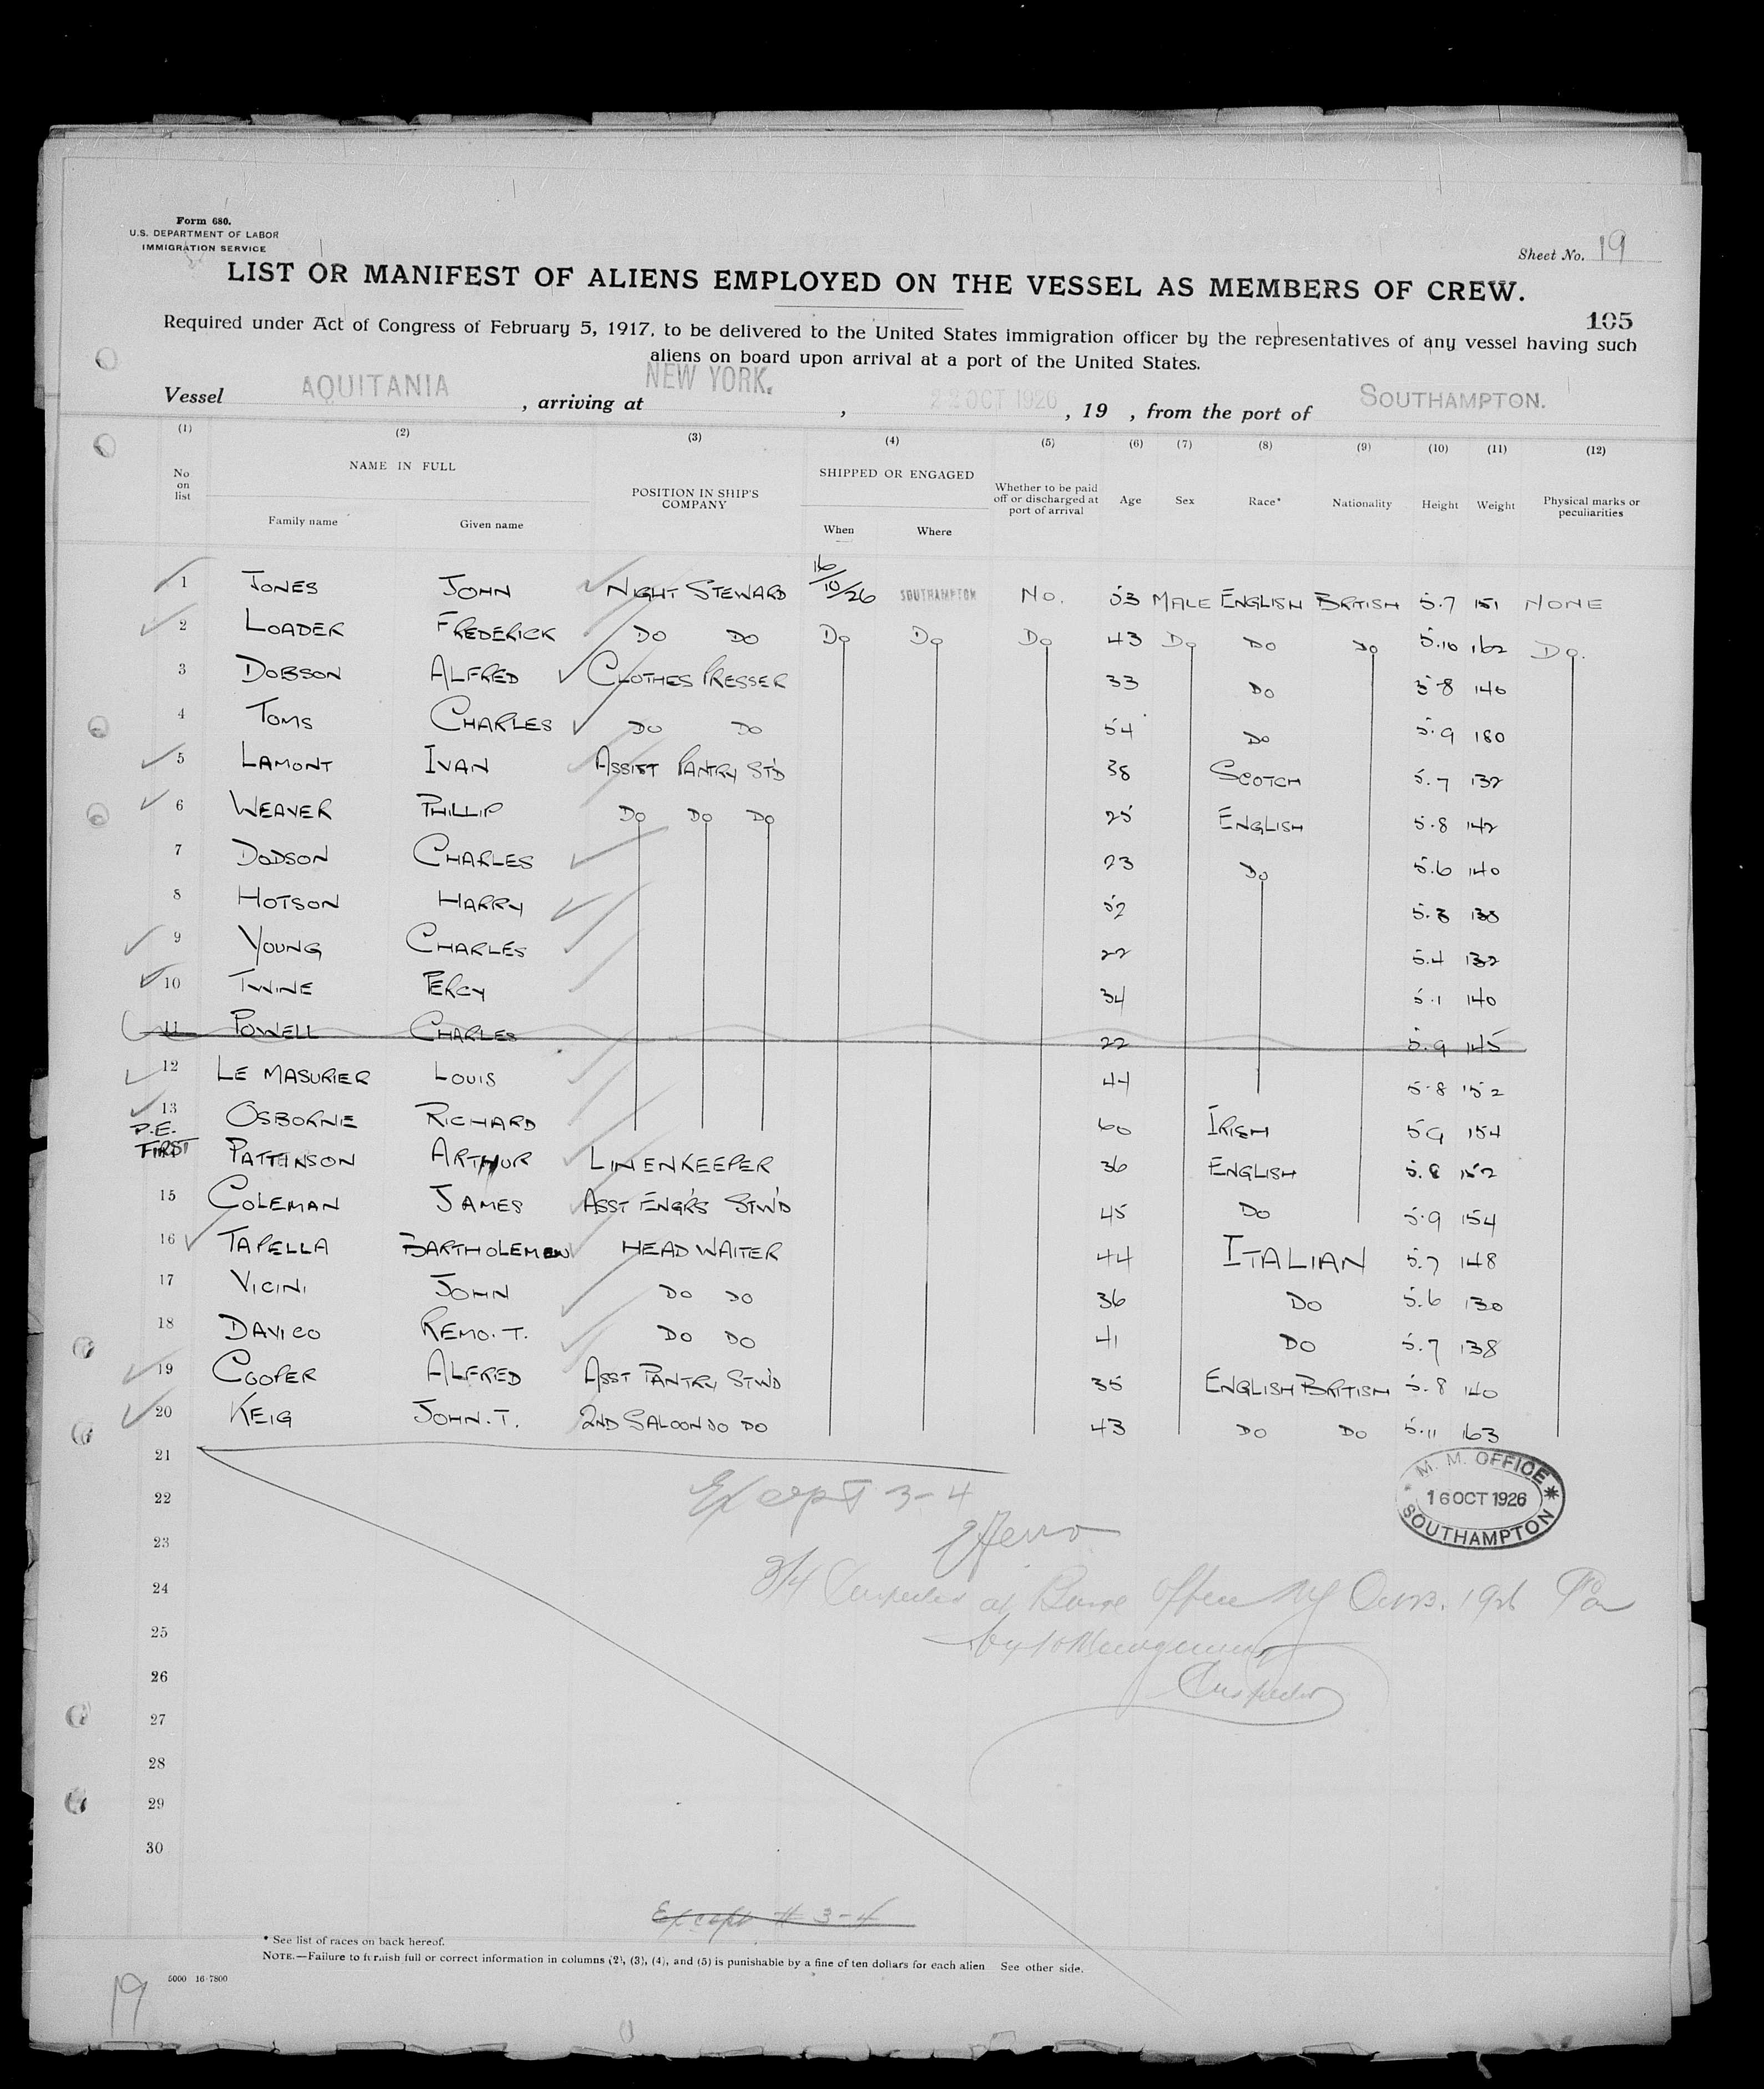 Form 680.
U.S. DEPARTMENT OF LABOR
IMMIGRATION SERVICE
Sheet No. 19
LIST OR MANIFEST OF ALIENS EMPLOYED ON THE VESSEL AS MEMBERS OF CREW.
105
Required under Act of Congress of February 5, 1917, to be delivered to the United States immigration officer by the representatives of any vessel having such
aliens on board upon arrival at a port of the United States.
Vessel AQUITANIA, arriving at NEW YORK., 22 OCT 1926, 19 , from the port of SOUTHAMPTON.
(1) (2) (3) (4) (5) (6) (7) (8) (9) (10) (11) (12)
No on list NAME IN FULL Family name Given name POSITION IN SHIP'S COMPANY SHIPPED OR ENGAGED When Where Whether to be paid off or discharged at port of arrival Age Sex Race* Nationality Height Weight Physical marks or peculiarities
1 JONES JOHN NIGHT STEWARD 16/10/26 SOUTHAMPTON No. 53 MALE ENGLISH BRITISH 5.7 151 NONE
2 LOADER FREDERICK DO DO DO DO DO 43 DO DO DO 5.10 162 DO.
3 DOBSON ALFRED CLOTHES PRESSER 33 DO 5.8 140
4 TOMS CHARLES DO DO 54 DO 5.9 180
5 LAMONT IVAN ASSIST PANTRY STD 38 SCOTCH 5.7 132
6 WEAVER PHILLIP DO DO DO 25 ENGLISH 5.8 142
7 DODSON CHARLES 23 DO 5.6 140
8 HOTSON HARRY 52 5.3 138
9 YOUNG CHARLES 22 5.4 132
10 TWINE PERCY 34 5.1 140
11 POWELL CHARLES 22 5.9 145
12 LE MASURIER LOUIS 44 5.8 152
13 OSBORNE RICHARD 60 IRISH 5.9 154
P.E. FIRST PATTINSON ARTHUR LINENKEEPER 36 ENGLISH 5.8 152
15 COLEMAN JAMES ASST ENGRS STWD 45 DO 5.9 154
16 TAPELLA BARTHOLEMEW HEAD WAITER 44 ITALIAN 5.7 148
17 VICINI JOHN DO DO 36 DO 5.6 130
18 DAVICO REMO. T. DO DO 41 DO 5.7 138
19 COOPER ALFRED ASST PANTRY STWD 35 ENGLISH BRITISH 5.8 140
20 KEIG JOHN. T. 2ND SALOON DO DO 43 DO DO 5.11 163
21
22
23
24
25
26
27
28
29
30
Except 3-4
M. M. OFFICE
16 OCT 1926
SOUTHAMPTON
3/4 Inspected at Barge Office NY Oct 23. 1926
Inspector
Except # 3-4
* See list of races on back hereof.
NOTE.—Failure to furnish full or correct information in columns (2), (3), (4), and (5) is punishable by a fine of ten dollars for each alien See other side.
5000 16-7800
19